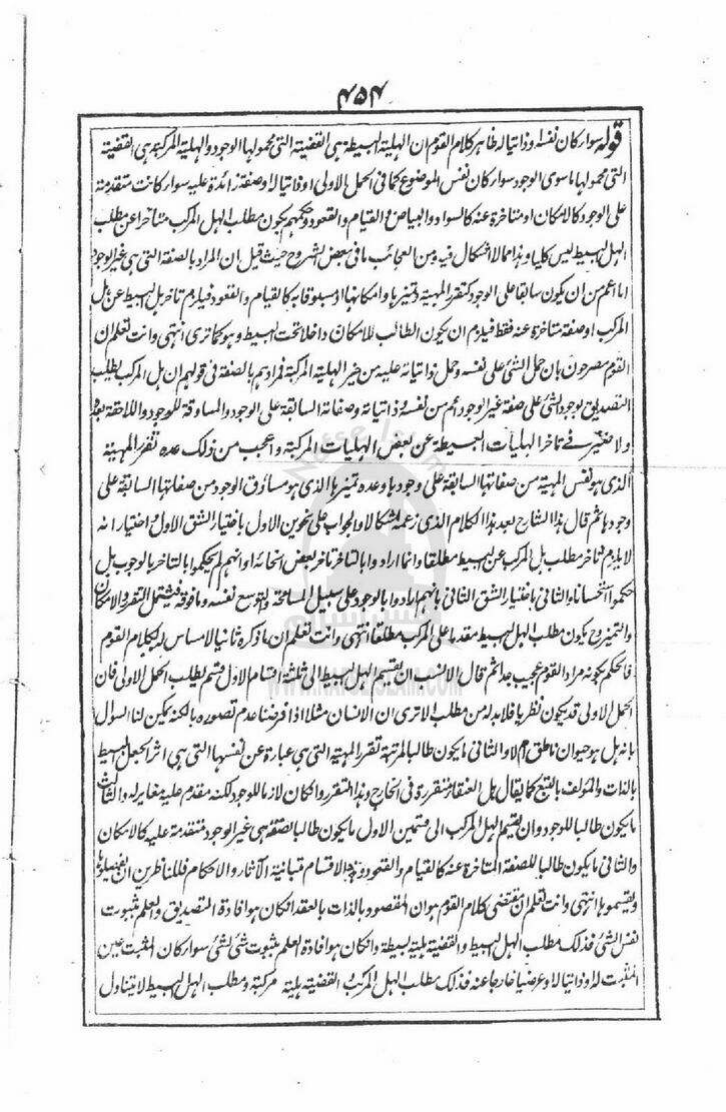 ۴۵۴
قوله سواء كان نفسه او ذاتياله ظاهر كلام القوم ان الهلية البسيطة هى القضية التى محمولها الوجود والهلية المركبة هى القضية
التى محمولها ماسوى الوجود سواء كان نفس الموضوع كما فى الحمل الاولى او ذاتياله او صفة زائدة عليه سواء كانت متقدمة
على الوجود كالامكان او متاخرة عنه كالسواد والبياض والقيام والقعود وحكمهم بكون مطلب الهل المركب متاخرا عن مطلب
الهل البسيط ليس كليا وهذا مما لا اشكال فيه ومن العجائب ما فى بعض الشروح حيث قيل ان المراد بالصفة التى هى غير الوجود
اما اعم من ان يكون سابقا على الوجود كتقرر المهية وتميزها وامكانها او مسبوقا به كالقيام والقعود فيلزم تاخر هل البسيط عن هل
المركب او صفة متاخرة عنه فقط فيلزم ان يكون الطالب للامكان داخلا تحت البسيط وهو كما ترى انتهى وانت تعلم ان
القوم مصرحون بان حمل الشئ على نفسه وحمل ذاتياته عليه من حيز الهلية المركبة فمرادهم بالصفة فى قولهم ان هل المركب يطلب
التصديق بوجود الشئ على صفة غير الوجود اعم من نفسه وذاتياته وصفاته السابقة على الوجود والمساوقة للوجود واللاحقة بعده
ولا ضير فى تاخر الهليات البسيطة عن بعض الهليات المركبة واعجب من ذلك عده تقرر المهية
الذى هو نفس المهية من صفاتها السابقة على وجودها وعده تميزها الذى هو مساوق الوجود من صفاتها السابقة على
وجودها ثم قال هذا الشارح بعد هذا الكلام الذى زعمه اشكالا والجواب على نحوين الاول باختيار الشق الاول واختيار انه
لا يلزم تاخر مطلب هل المركب عن البسيط مطلقا وانما ارادوا بالتاخر تاخر بعض انحائه او انهم لم يحكموا بالتاخر بالوجوب بل
حكموا استحسانا والثانى باختيار الشق الثانى بانهم ارادوا بالوجود على سبيل المسامحة والتوسع نفسه وما فوقه فيشمل التقرر والامكان
والتميز وح يكون مطلب الهل البسيط مقدما على المركب مطلقا انتهى وانت تعلم ان ما ذكره ثانيا لا مساس له بكلام القوم
فالحكم بكونه مراد القوم عجيب جدا ثم قال الانسب ان يقسم الهل البسيط الى ثلثة اقسام الاول قسم يطلب الحمل الاولى فان
الحمل الاولى قد يكون نظريا فلا بد له من مطلب الا ترى ان الانسان مثلا اذا فرضنا عدم تصوره بالكنه يمكن لنا السؤال
بانه هل هو حيوان ناطق ام لا والثانى ما يكون طالبا لمرتبة تقرر المهية التى هى عبارة عن نفسها التى هى اثر الجعل البسيط
بالذات والمؤلف بالتبع كما يقال هل العنقاء متقررة فى الخارج وهذا التقرر وان كان لازما للوجود لكنه مقدم عليه مغاير له والثالث
ما يكون طالبا للوجود وان يقسم الهل المركب الى قسمين الاول ما يكون طالبا لصفة هى غير الوجود متقدمة عليه كالامكان
والثانى ما يكون طالبا للصفة المتاخرة عنه كالقيام والقعود وهذه الاقسام متباينة الآثار والاحكام فللناظرين ان يفصلوها
ويقسموها انتهى وانت تعلم ان مقتضى كلام القوم هو ان المقصود بالذات بالعقد ان كان هو افادة التصديق والعلم بثبوت
نفس الشئ فذلك مطلب الهل البسيط والقضية هلية بسيطة وان كان هو افادة العلم بثبوت شئ لشئ سواء كان المثبت عين
المثبت له او ذاتياله او عرضيا خارجا عنه فذلك مطلب الهل المركب والقضية هلية مركبة ومطلب الهل البسيط لا يتناول
Nafse Islam
WWW.NAFSEISLAM.COM